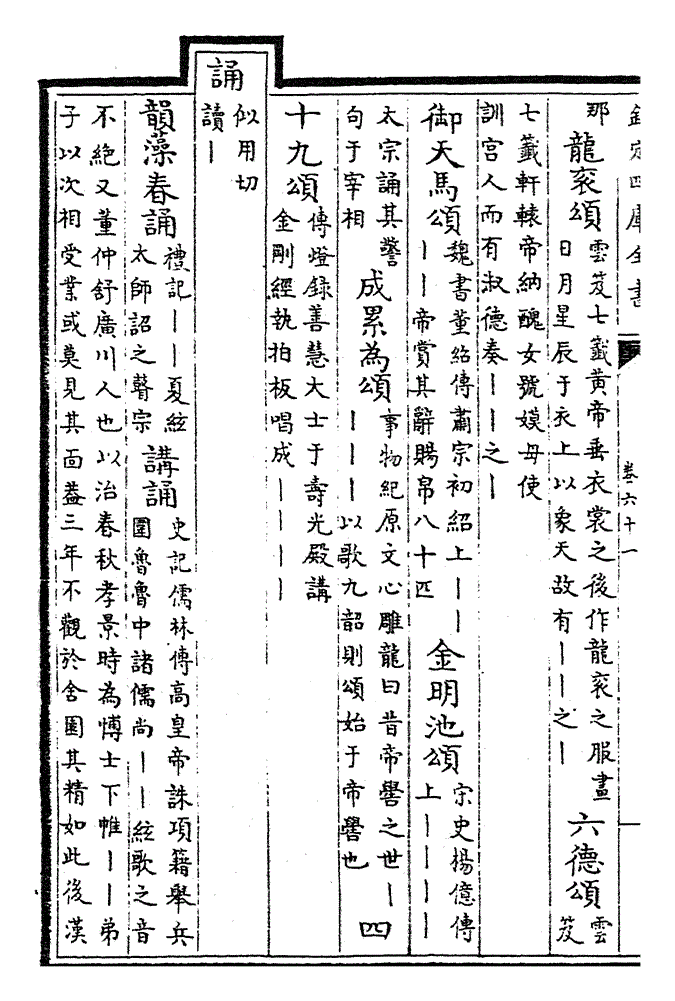 欽定四庫全書 卷六十一
那
龍衮頌
雲笈七籤黃帝垂衣裳之後作龍衮之服畫
日月星辰于衣上以象天故有丨丨之丨
六德頌
雲
笈
七籤軒轅帝納醜女號嫫母使
訓宮人而有叔德奏丨丨之丨
御天馬頌
魏書董紹傳肅宗初紹上丨丨
丨丨帝賞其辭賜帛八十匹
金明池頌
宋史楊億傳
上丨丨丨丨
太宗誦其警
句于宰相
成累為頌
事物紀原文心雕龍曰昔帝嚳之世丨
丨丨丨以歌九韶則頌始于帝嚳也
四
十九頌
傳燈錄善慧大士于壽光殿講
金剛經執拍板唱成丨丨丨丨
誦
似用切
讀丨
韻藻春誦
禮記丨丨夏絃
太師詔之瞽宗
講誦
史記儒林傳高皇帝誅項籍舉兵
圍魯魯中諸儒尚丨丨絃歌之音
不絶又董仲舒廣川人也以治春秋孝景時為博士下帷丨丨弟
子以次相受業或莫見其面葢三年不觀於舍園其精如此後漢